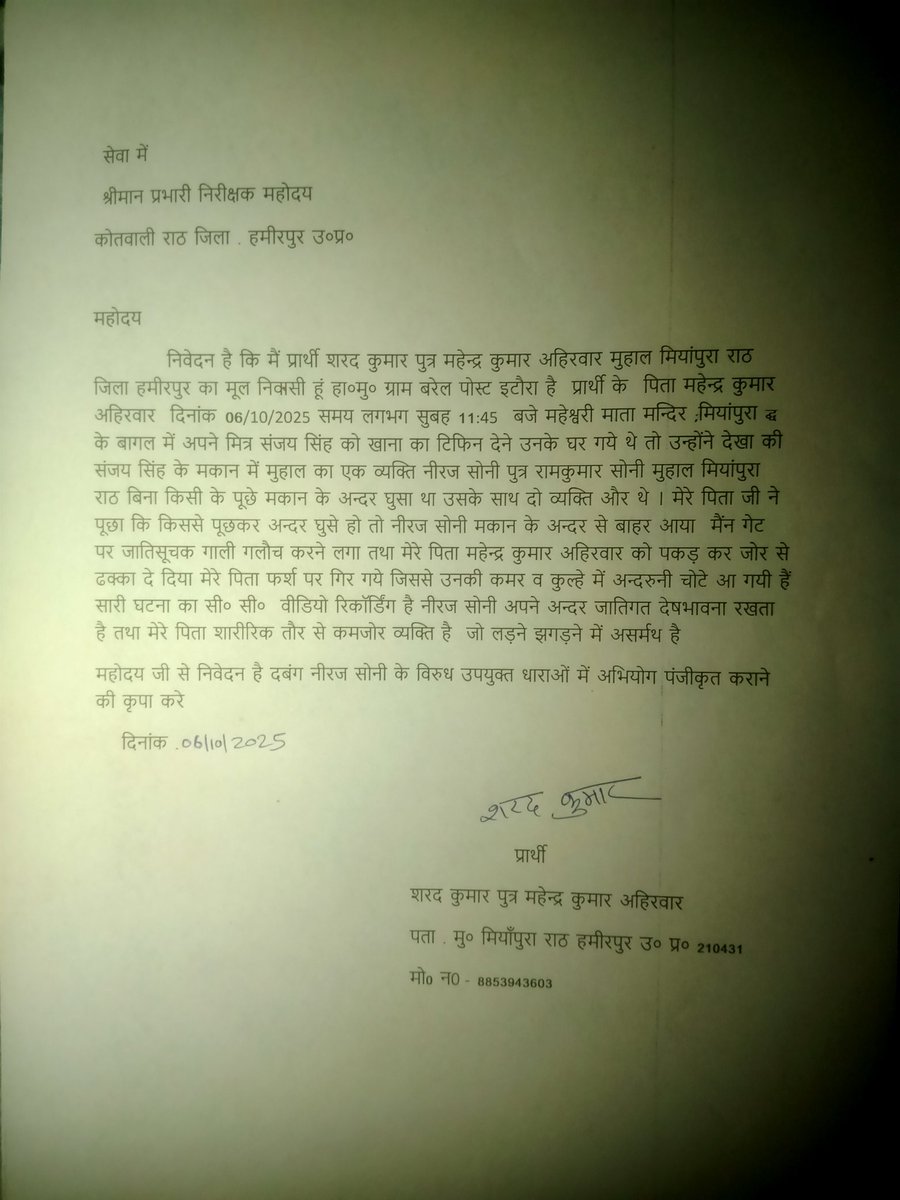 सेवा में
श्रीमान प्रभारी निरीक्षक महोदय
कोतवाली राठ जिला . हमीरपुर उ०प्र०
महोदय
निवेदन है कि मैं प्रार्थी शरद कुमार पुत्र महेन्द्र कुमार अहिरवार मुहाल मियांपुरा राठ
जिला हमीरपुर का मूल निवासी हूं हा०मु० ग्राम बरेल पोस्ट इटौरा है प्रार्थी के पिता महेन्द्र कुमार
अहिरवार दिनांक 06/10/2025 समय लगभग सुबह 11:45 बजे महेश्वरी माता मन्दिर मियांपुरा
के बागल में अपने मित्र संजय सिंह को खाना का टिफिन देने उनके घर गये थे तो उन्होंने देखा की
संजय सिंह के मकान में मुहाल का एक व्यक्ति नीरज सोनी पुत्र रामकुमार सोनी मुहाल मियांपुरा
राठ बिना किसी के पूछे मकान के अन्दर घुसा था उसके साथ दो व्यक्ति और थे । मेरे पिता जी ने
पूछा कि किससे पूछकर अन्दर घुसे हो तो नीरज सोनी मकान के अन्दर से बाहर आया मैंन गेट
पर जातिसूचक गाली गलौच करने लगा तथा मेरे पिता महेन्द्र कुमार अहिरवार को पकड़ कर जोर से
ढक्का दे दिया मेरे पिता फर्श पर गिर गये जिससे उनकी कमर व कुल्हे में अन्दरुनी चोटे आ गयी हैं
सारी घटना का सी० सी० वीडियो रिकॉर्डिंग है नीरज सोनी अपने अन्दर जातिगत देषभावना रखता
है तथा मेरे पिता शारीरिक तौर से कमजोर व्यक्ति है जो लड़ने झगड़ने में असर्मथ है
महोदय जी से निवेदन है दबंग नीरज सोनी के विरुध उपयुक्त धाराओं में अभियोग पंजीकृत कराने
की कृपा करे
दिनांक .06/10/2025
शरद कुमार
प्रार्थी
शरद कुमार पुत्र महेन्द्र कुमार अहिरवार
पता . मु० मियाँपुरा राठ हमीरपुर उ० प्र० 210431
मो0 न0 - 8853943603